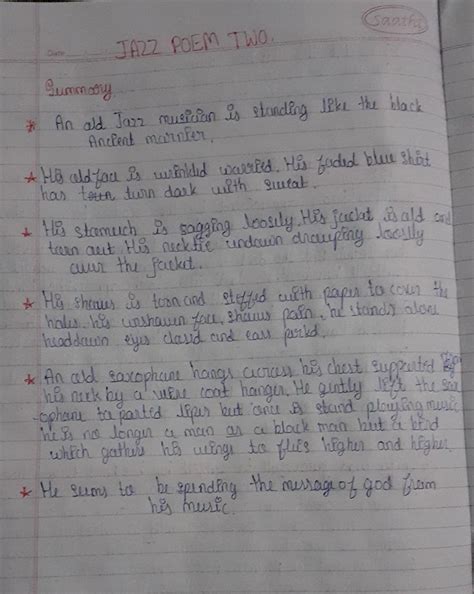 saathi
Date
JAZZ POEM TWO.
Summary
An old Jazz musician is standing like the black
Ancient marnier.
His old face is wrinkled warried. His faded blue shirt
has town turn dark with sweat.
His stamuch is sagging loosily. His jacket is old and
torn out. His necktie undawn drauping loosily
over the jacket.
His shraus is torn and stoffed with paper to cover the
holes, his unshawn face, shaws pain, he stands alone
headdawn eyes closed and ears perkd.
An old saxophane hangs accrass his chest supported by
his neck by a wire coat hanger. He gently lift the sax
-ophane to parted lipar but once is stand playing music
he is no longer a man or a black man but a bird
which gathers his wings to flies higher and higher.
He sums to be spending the message of god from
his music.